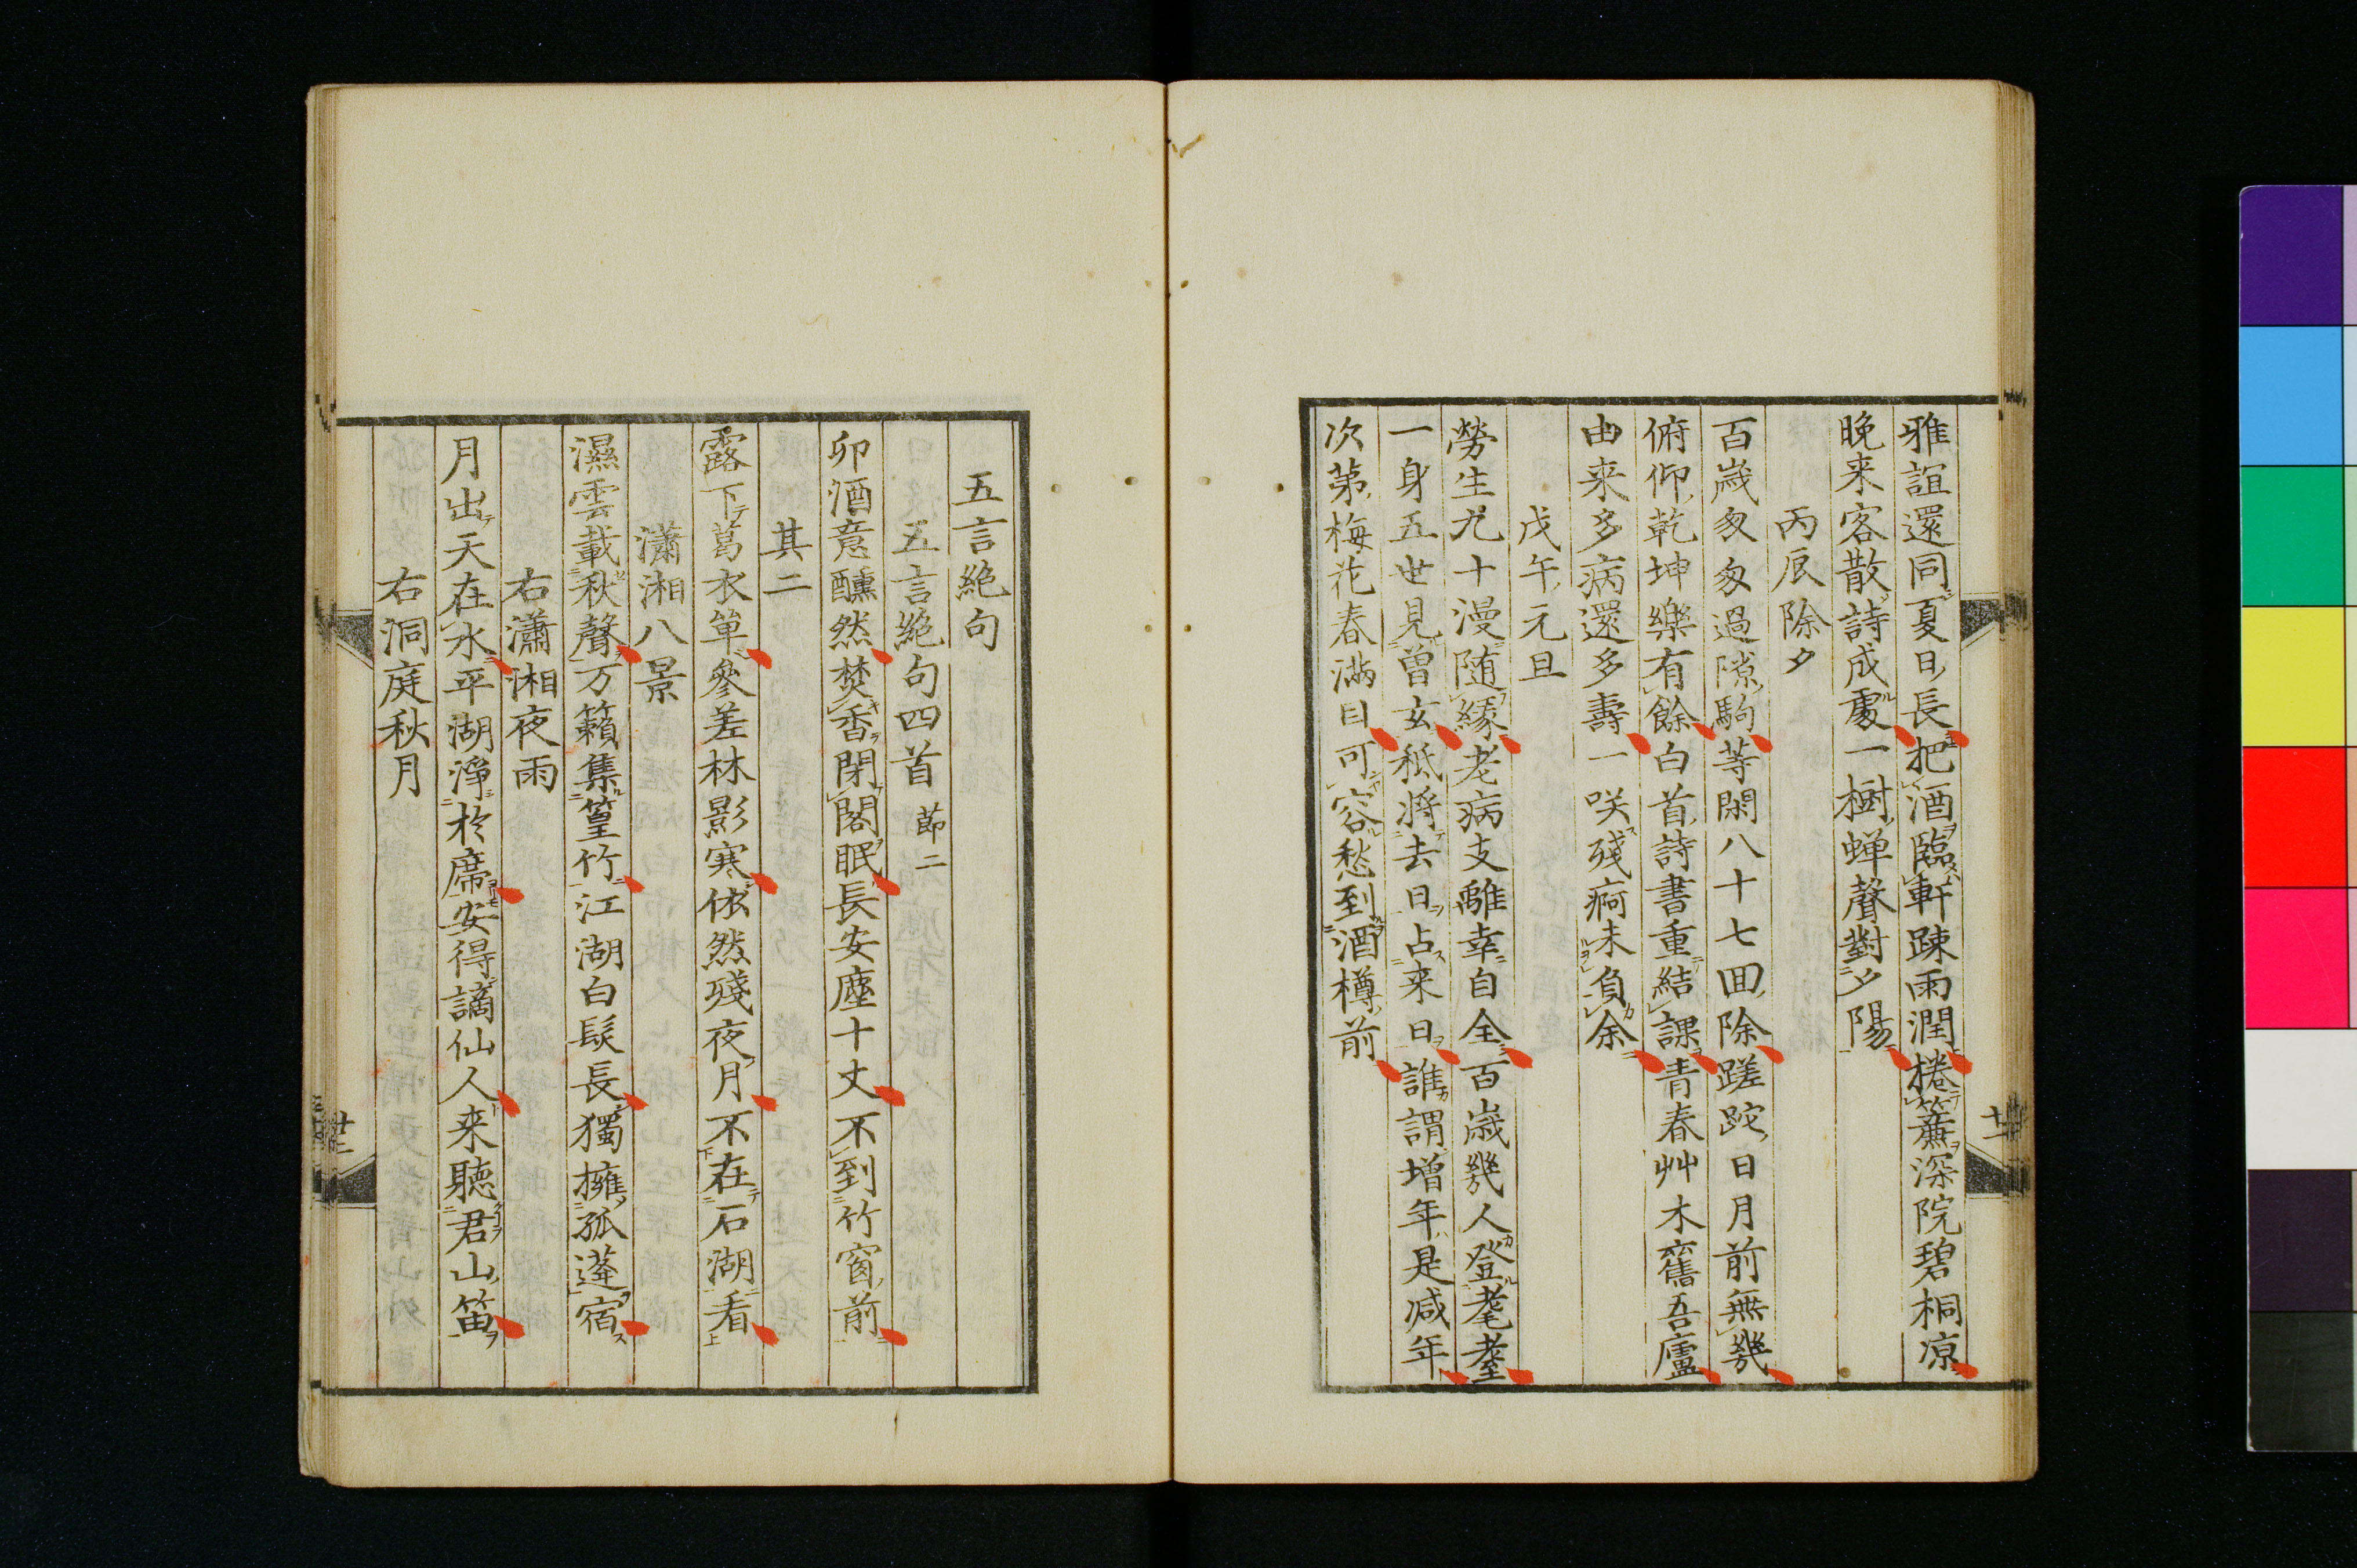 雅誼還同夏日長把酒臨軒踈雨潤捲簾深院碧桐凉
晩来客散詩成處一樹蝉聲對夕陽
丙辰除夕
百歳匆匆過隙駒等閑八十七回除蹉跎日月前無幾
俯仰乾坤樂有餘白首詩書重結課青春艸木舊吾廬
由来多病還多壽一咲殘痾未負余
戊午元旦
勞生九十漫随縁老病支離幸自全百歳幾人登耄耋
一身五世見曽玄秪将去日占来日誰謂増年是减年
次第梅花春滿目可容愁到酒樽前
十二
五言絶句
五言絶句四首 莭二
卯酒意醺然焚香閉閣眠長安塵十丈不到竹窗前
其二
露下葛衣単參差林影寒依然殘夜月不在石湖看
瀟湘八景
濕雲載秋聲万籟集篁竹江湖白髮長獨擁孤蓬宿
右瀟湘夜雨
月出天在水平湖淨於席安得謫仙人来聴君山笛
右洞庭秋月